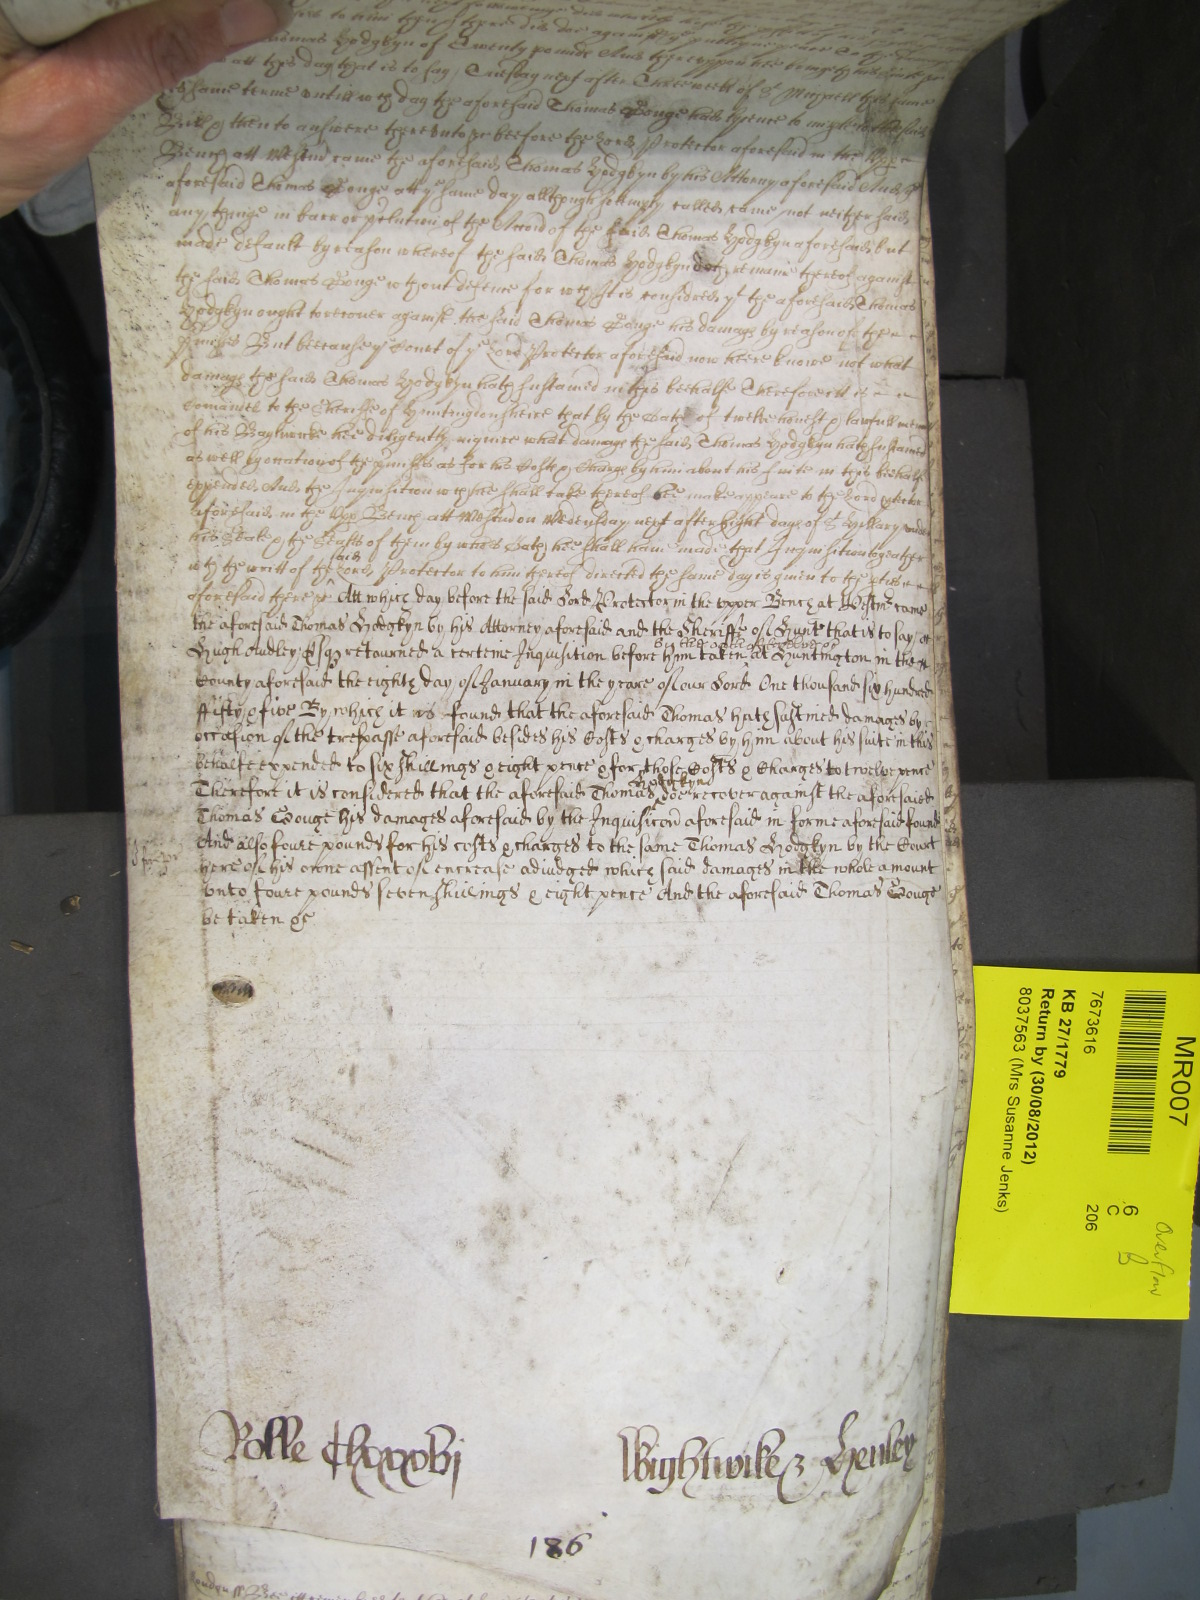 Thomas Hodgkyn of Twenty pounds And thereuppon hee bringeth
att this day that is to say Tuesday next after Three weeks of St Michaell this same
same terme untill wch day the aforesaid Thomas Gouge hath lycence to imparle to the said
Bill & then to answere thereunto &c beefore the Lord Protector aforesaid in the Upper
Bench att Westmr came the aforesaid Thomas Hodgkyn by his Attorny aforesaid And the
aforesaid Thomas Gouge att ye same day allthough sollemnly called came not neither said
any thinge in barr or preclusion of the Accion of the said Thomas Hodgkyn aforesaid but
made default by reason whereof the said Thomas Hodgkyn doth remaine thereof against
the said Thomas Gouge wthout defence for wch It is considred yt the aforesaid Thomas
Hodgkyn ought to recover against the said Thomas Gouge his damage by reason of the
pmisses But because ye Court of ye Lord Protector aforesaid now heere knowe not what
damage the said Thomas Hodgkyn hath sustained in this beehalfe Therefore itt is
comanded to the Sheriffe of Huntingtonsheire that by the Oath of twelve honest & lawfull men
of his Baylywicke hee diligently inquire what damage the said Thomas Hodgkyn hath sustained
as well by occation of the pmisses as for his Costs & Charge by him about his suite in this beehalfe
expended And the Inquisition wch hee shall take thereof hee make appeare to the Lord Ptector
aforesaid in the Upp Bench att Westm on Wedensday next after Eight dayes of St Hyllary under
his Seale & the Seales of them by whos Oath hee shall have made that Inquisition togeather
wth the writt of the said Lord Protector to him thereof directed the same day is given to the
aforesaid there &c Att which day before the said Lord Protector in the upper Bench at Westmr came
the aforesaid Thomas Hodgkyn by his Attorney aforesaid and the Sheriffe of Hunt that is to say
Hugh Audley Esqr returned a certeine Inquisition before him taken at Huntington in the
County aforesaid the eighth day of January in the yeare of our Lord One thousand six hundred
ffifty & five By which it is found that the aforesaid Thomas hath sustined damages by
occasion of the trespasse aforesaid besides his Costs & charges by him about his suite in this
behalfe expended to six shillings & eight pence & for those Costs & Charges to twelve pence
Therefore it is considered that the aforesaid Thomas Hodgkyn doe recover against the aforesaid
Thomas Gouge his damages aforesaid by the Inquisicon aforesaid in forme aforesaid found
And also foure pounds for his costs & charges to the same Thomas Hodgkyn by the Court
here of his owne assent of encrease adiudged which said damages in the whole amount
unto foure pounds seven shillings & eight pence And the aforesaid Thomas Gouge
be taken &c
Rolle Clxxxvj Wightwike & Henley
186
MR007
7673616
KB 27/1779
Return by (30/08/2012)
8037563 (Mrs Susanne Jenks)
6
C
206
Overflow
B